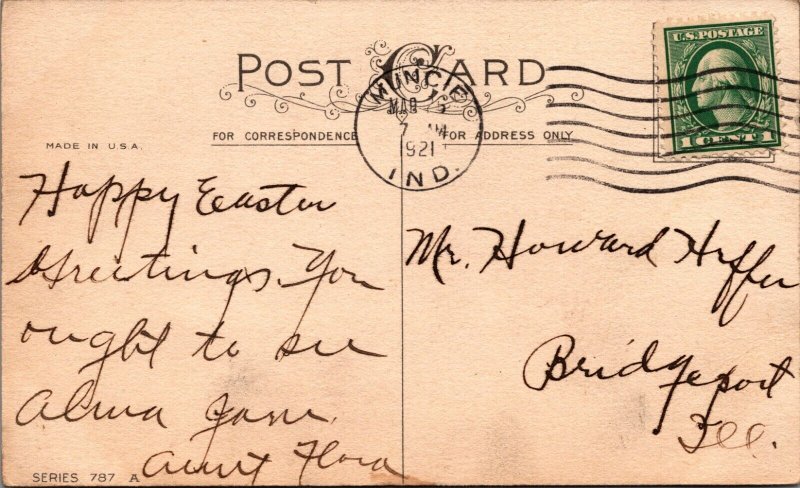 POST CARD
FOR CORRESPONDENCE
FOR ADDRESS ONLY
MADE IN U.S.A.
MUNCIE
MAR 25
7 AM
1921
IND.
U.S. POSTAGE
1 CENT 1
Happy Easter
Greetings. You
ought to see
Alma Jane.
Aunt Flora
Mr. Howard Heffer
Bridgeport
Ill.
SERIES 787 A